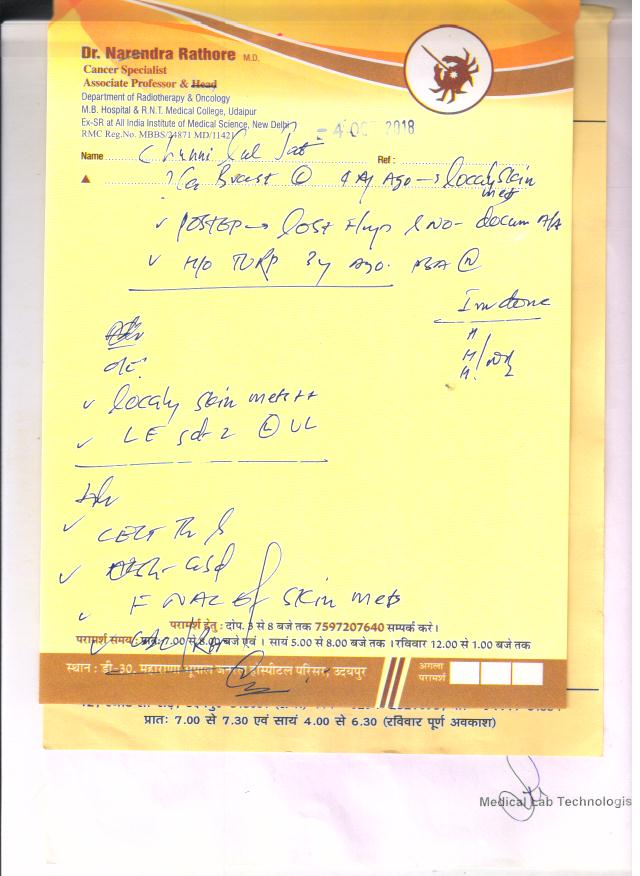 Dr. Narendra Rathore M.D.
Cancer Specialist
Associate Professor & Head
Department of Radiotherapy & Oncology
M.B. Hospital & R.N.T. Medical College, Udaipur
Ex-SR at All India Institute of Medical Science, New Delhi
RMC Reg.No. MBBS/24871 MD/11421
- 4 OCT 2018
Name Chunni Lal Jat Ref :
? Ca Breast Ⓛ 4 Ago → locally skin mets
✓ POSTOP → lost F/up & NO- docum A/A
✓ H/o TURP 3y ago.
Inv done
o/E
✓ locally skin mets ++
✓ LE Ⓛ UL
✓ CECT Th
✓ FNAC of skin mets
परामर्श हेतु : दोप. 3 से 8 बजे तक 7597207640 सम्पर्क करें।
परामर्श समय : प्रातः 7.00 से 8.00 बजे एवं । सायं 5.00 से 8.00 बजे तक । रविवार 12.00 से 1.00 बजे तक
✓ CBC/
स्थान : डी-30, महाराणा भूपाल जनाना हॉस्पीटल परिसर, उदयपुर
अगला परामर्श
प्रातः 7.00 से 7.30 एवं सायं 4.00 से 6.30 (रविवार पूर्ण अवकाश)
Medical Lab Technologis